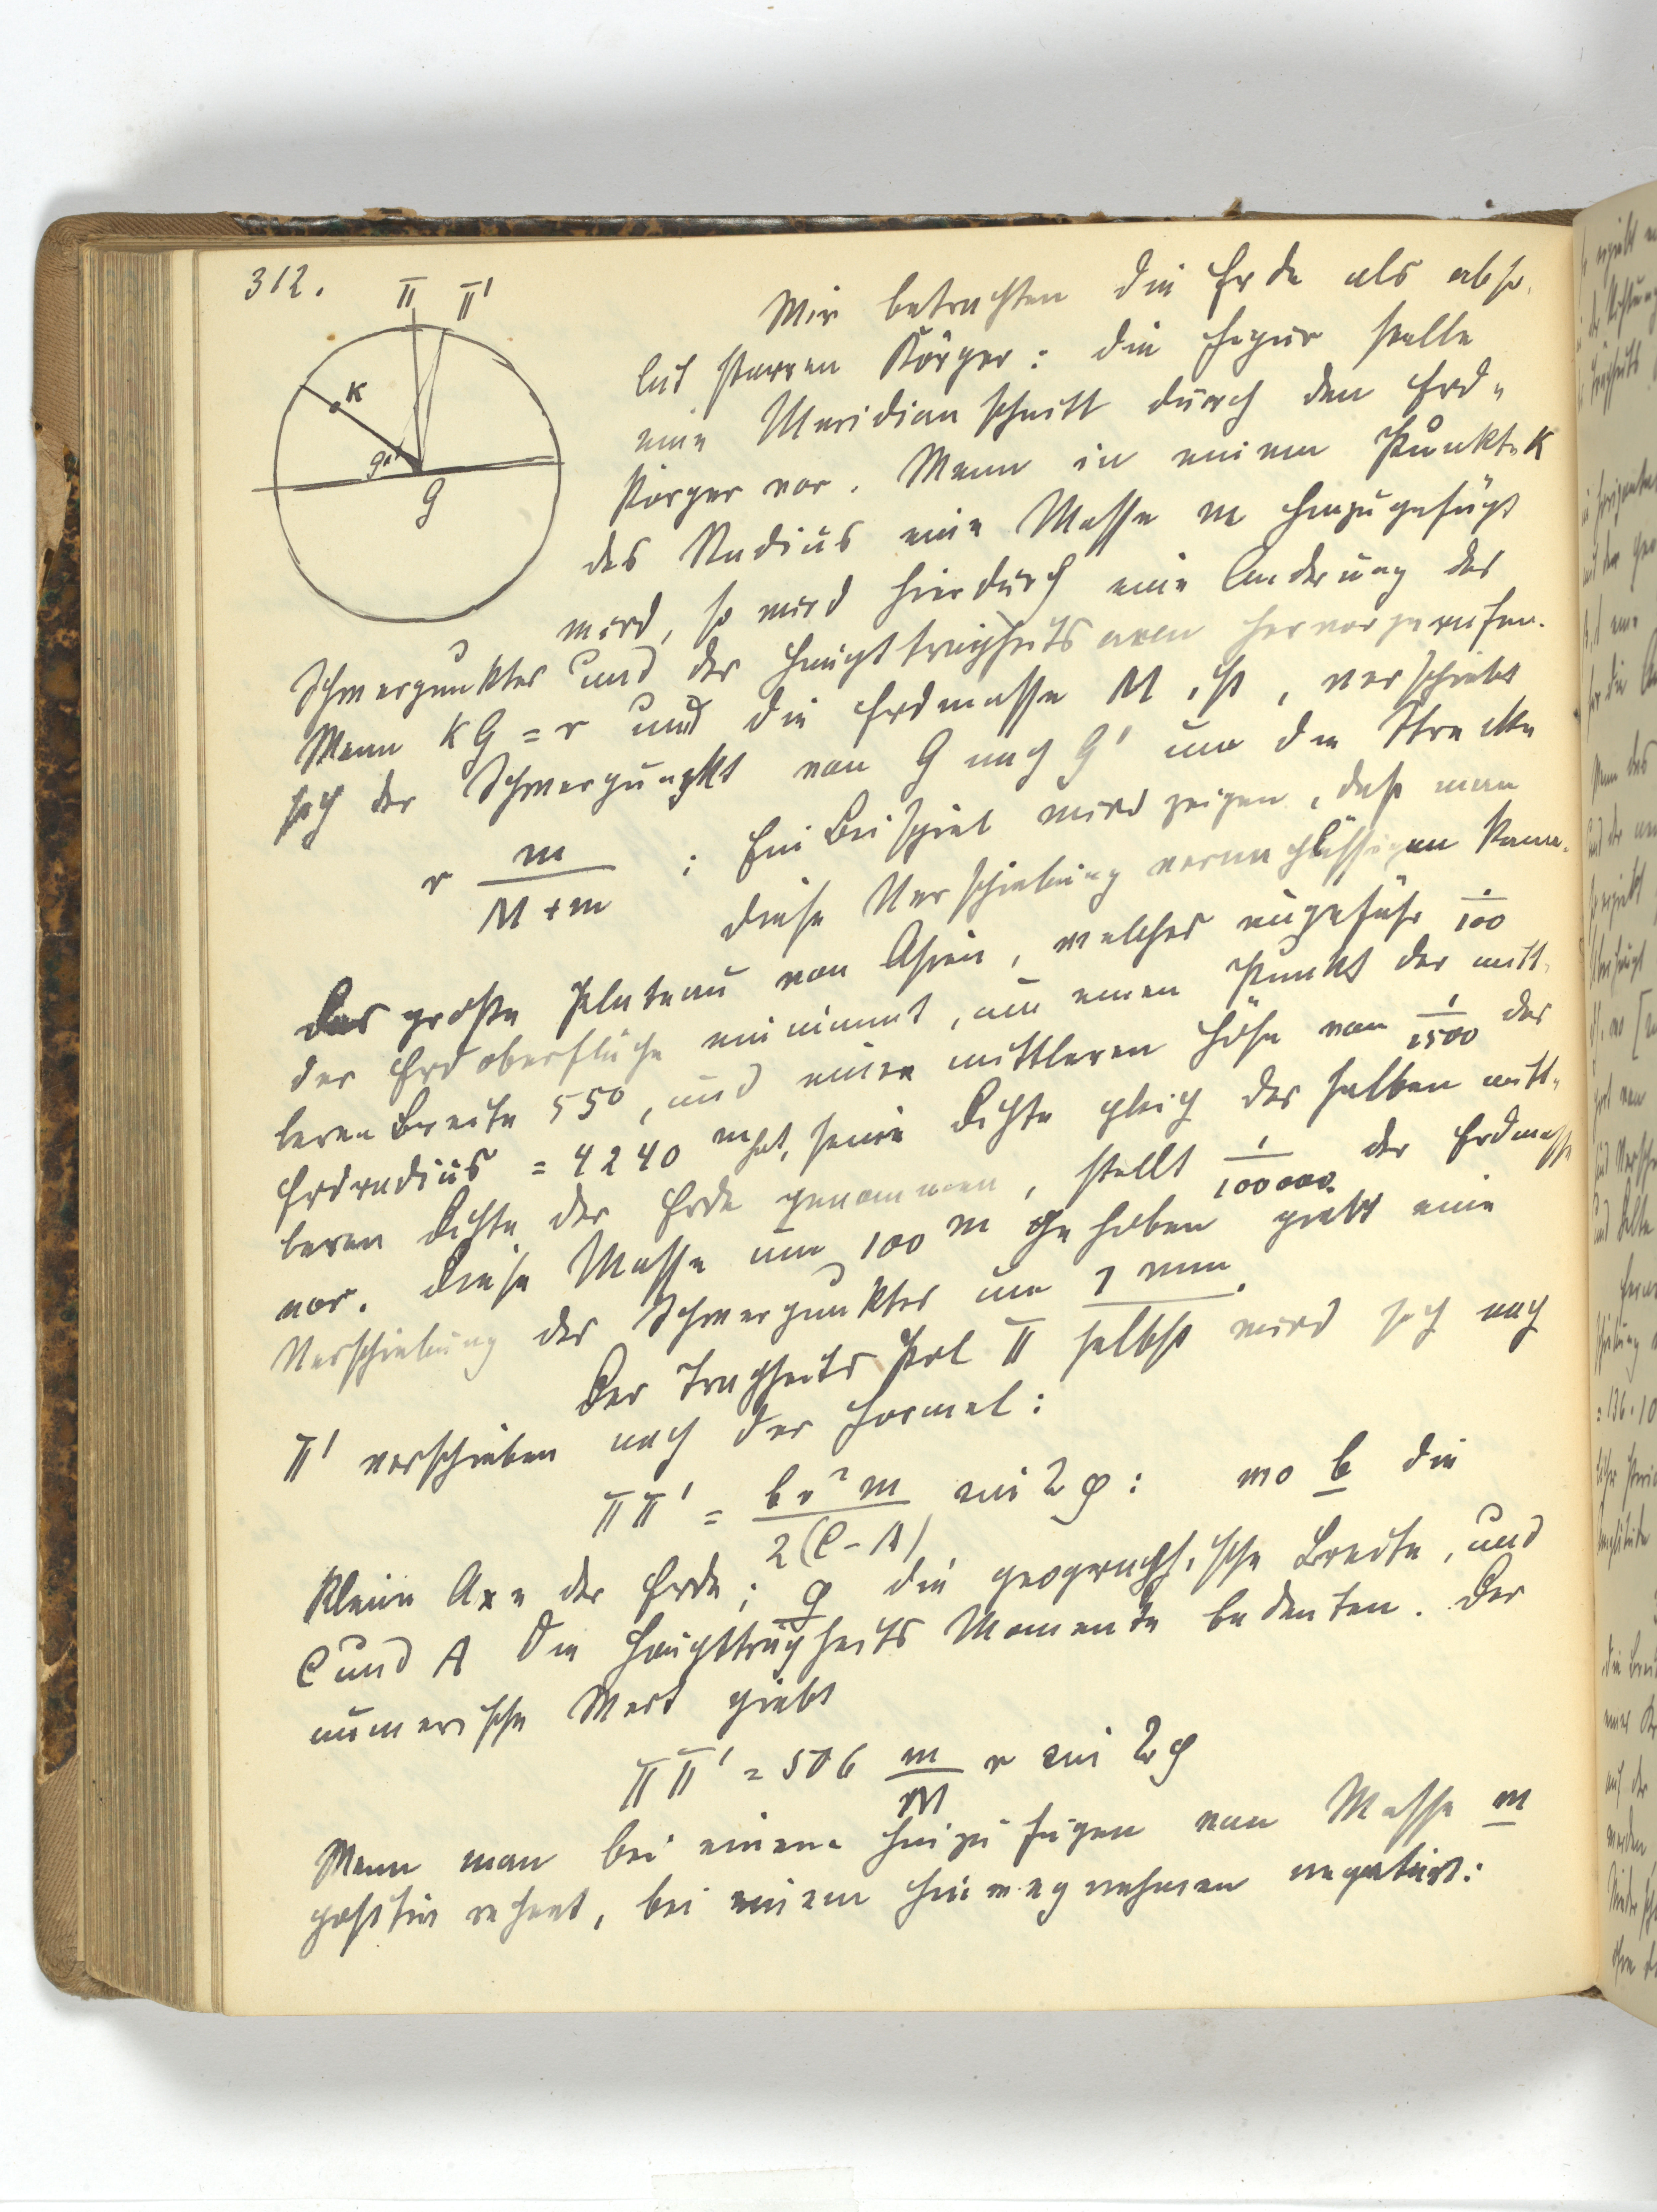 312.
π π'
K
G'
G
Wir betrachten die Erde als abso-
lut starren Körper: die Figur stelle
eine Meridianschnitt durch den Erd-
körper vor. Wenn in einem Punkte K
des Radius eine Masse m hinzugefügt
wird, so wird hierdurch eine Änderung des
Schwerpunktes und der Hauptträgheitsaxen hervorgerufen.
Wenn KG = r und die Erdmasse M ist, verschiebt
sich der Schwerpunkt von G nach G' um die Strecke
r m/(M+m) ; Ein Beispiel wird zeigen, daß man
diese Verschiebung vernachlässigen kann.
Das große Plateau von Asien, welches ungefähr 1/100
der Erdoberfläche einnimmt, um einen Punkt der mitt-
leren Breite 55°, und einer mittleren Höhe von 1/1500 des
Erdradius = 4240 m hat, seine Dichte gleich der halben mitt-
leren Dichte der Erde genommen, stellt 1/100000 der Erdmasse
vor. Diese Masse um 100 m gehoben giebt eine
Verschiebung des Schwerpunktes um 1 mm.
Der Trägheits Pol π selbst wird sich nach
π' verschieben nach der Formel:
ππ' = b r² m / 2(C-A) sin 2φ : wo b die
kleine Axe der Erde; φ die geographische Breite, und
C und A die Hauptträgheits Momente bedeuten. Der
numerische Wert giebt
ππ' = 506 m/M r sin 2φ
Wenn man bei einem Hinzufügen von Masse m
positiv rechnet, bei einem Hinwegnehmen negativ: